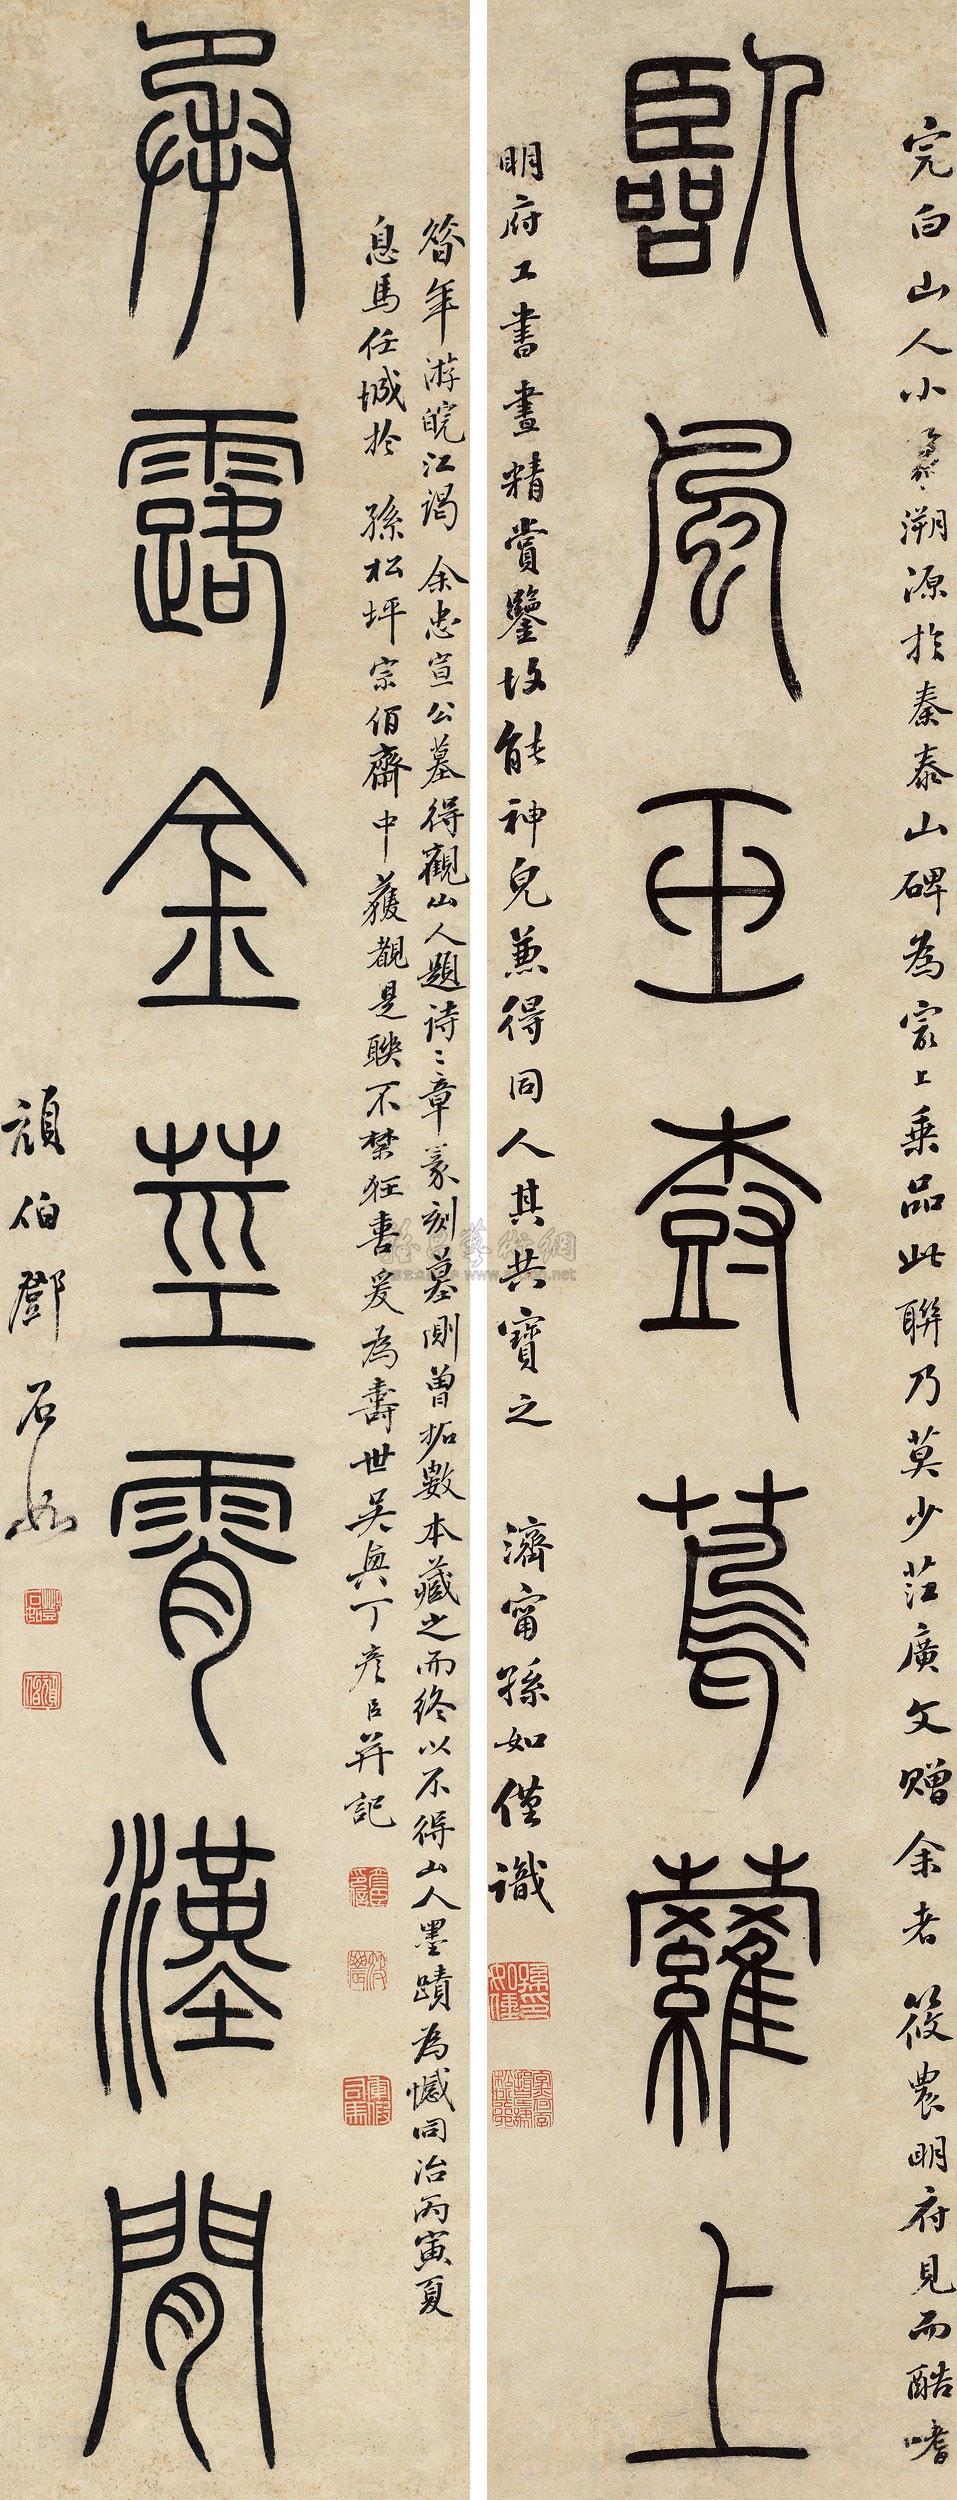 完白山人小篆溯源於秦泰山碑為冣上乘品此聯乃莫少茳廣文贈余者筱農明府見而酷嗜
臨風玉樹蔦蘿上
明府工書畫精賞鑒故能神皃兼得同人其共寶之 濟甯孫如僅識
昝年游皖江謁余忠宣公墓得觀山人題詩二章篆刻墓側曾拓數本藏之而終以不得山人墨蹟為憾同治丙寅夏
息馬任城於孫松坪宗伯齋中獲覩是聯不禁狂喜爰為壽世吳興丁彥臣并記
承露金莖霄漢間
頑伯鄧石如